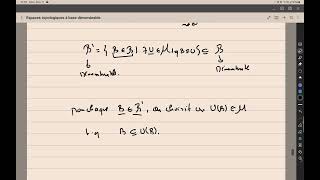 Espaces topologiques à base dénombrable
B' = { B ∈ B | ∃ U ∈ U tq B ⊆ U } ⊆ B
Dénombrable. Dénombrable
pour chaque B ∈ B', on choisit un U(B) ∈ U
t.q B ⊆ U(B).